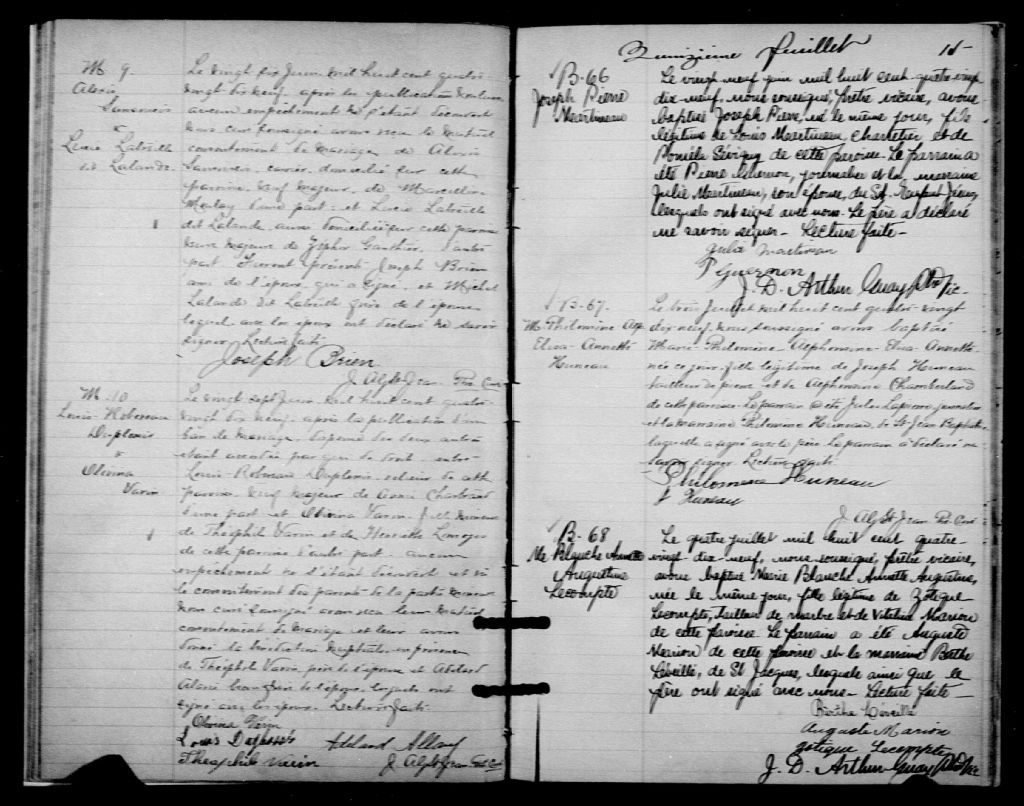 M 9.
Alexis
Lucie Labrèche
dit Lalande.
Le vingt six Juin mil huit cent quatre-
vingt dix neuf, après la publication
aucun empêchement ne s'étant découvert
nous curé soussigné avons reçu le mutuel
consentement de mariage de Alexis
domicilié sur cette
paroisse, veuf majeur, de Marcelline
d'une part, et Lucie Labrèche
dit Lalande aussi domiciliée sur cette paroisse
veuve majeure de Gauthier, d'autre
part. Furent présents Joseph Brien
ami de l'époux, qui a signé et Michel
Lalande dit Labrèche frère de l'épouse
lequel avec les époux ont déclaré ne savoir
signer. Lecture faite
Joseph Brien
J. Alph St Jean Ptre Curé
M. 10
Louis
Duplessis
&
Olivina
Varin
Le vingt sept Juin mil huit cent quatre-
vingt dix neuf, après la publication d'un
ban de mariage, dispense des deux autres
étant accordée par qui de droit, entre
Louis Duplessis, de cette
paroisse, veuf majeur de
d'une part, et Olivina Varin, fille mineure
de Théophile Varin et de Henriette Limoges
de cette paroisse d'autre part, aucun
empêchement ne s'étant découvert et vu
le consentement des parents de la partie mineure
nous curé soussigné avons reçu leur mutuel
consentement de mariage et leur avons
donné la bénédiction nuptiale en présence
de Théophile Varin, père de l'épouse et Adélard
Alarie de l'époux, lesquels ont
signé avec les époux. Lecture faite
Olivina Varin
Louis
Adélard Allary
Théophile Varin
J. Alph St Jean Ptre Curé
Quinzième feuillet 15
B-66
Joseph Pierre
Martineau
Le vingt-neuf juin mil huit cent quatre-vingt
dix-neuf, nous soussigné, prêtre vicaire, avons
baptisé Joseph Pierre, né le même jour, fils
légitime de Louis Martineau, charretier et de
Sévigny de cette paroisse. Le parrain a
été Pierre Guernon, journalier et la marraine
Julie Martineau, son épouse, du St-Enfant Jésus,
lesquels ont signé avec nous. Le père a déclaré
ne savoir signer. Lecture faite-
Julie Martineau
P Guernon
J. D. Arthur Guay Ptre Vic-
B-67.
M. Philomène Alp
Elisa-Annette
Huneau
Le trois Juillet mil huit cent quatre-vingt
dix neuf, nous soussigné avons baptisé
Marie-Philomène-Alphonsine-Elisa-Annette-
née ce jour, fille légitime de Joseph Huneau
tailleur de pierre et de Alphonsine Chamberland
de cette paroisse. Le parrain a été Jules Lapierre, journalier
et la marraine Philomène Huneau, de St Jean Baptiste
laquelle a signé avec le père. Le parrain a déclaré ne
savoir signer. Lecture faite
Philomena Huneau
J Huneau
J. Alph St Jean Ptre Curé
B-68
Mie Blanche Annette
Augustine
Lecompte
Le quatre juillet mil huit cent quatre-
vingt-dix-neuf, nous soussigné, prêtre vicaire,
avons baptisé Marie Blanche Annette Augustine,
née le même jour, fille légitime de Zotique
Lecompte, tailleur de marbre et de Vitaline Marion
de cette paroisse. Le parrain a été Auguste
Marion de cette paroisse et la marraine Berthe
Léveillé, de St Jacques, lesquels ainsi que le
père ont signé avec nous- Lecture faite-
Berthe Léveillé
Auguste Marion
Zotique Lecompte
J. D. Arthur Guay Ptre Vic